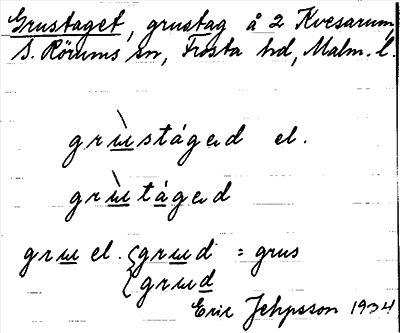 Grustaget, grustag å 2 Kvesarum,
S. Rörums sn, Frosta hd, Malm. l.
grùstáged el.
grùtáged
gru el. {grud = grus
{grud
Eric Jeppsson 1934